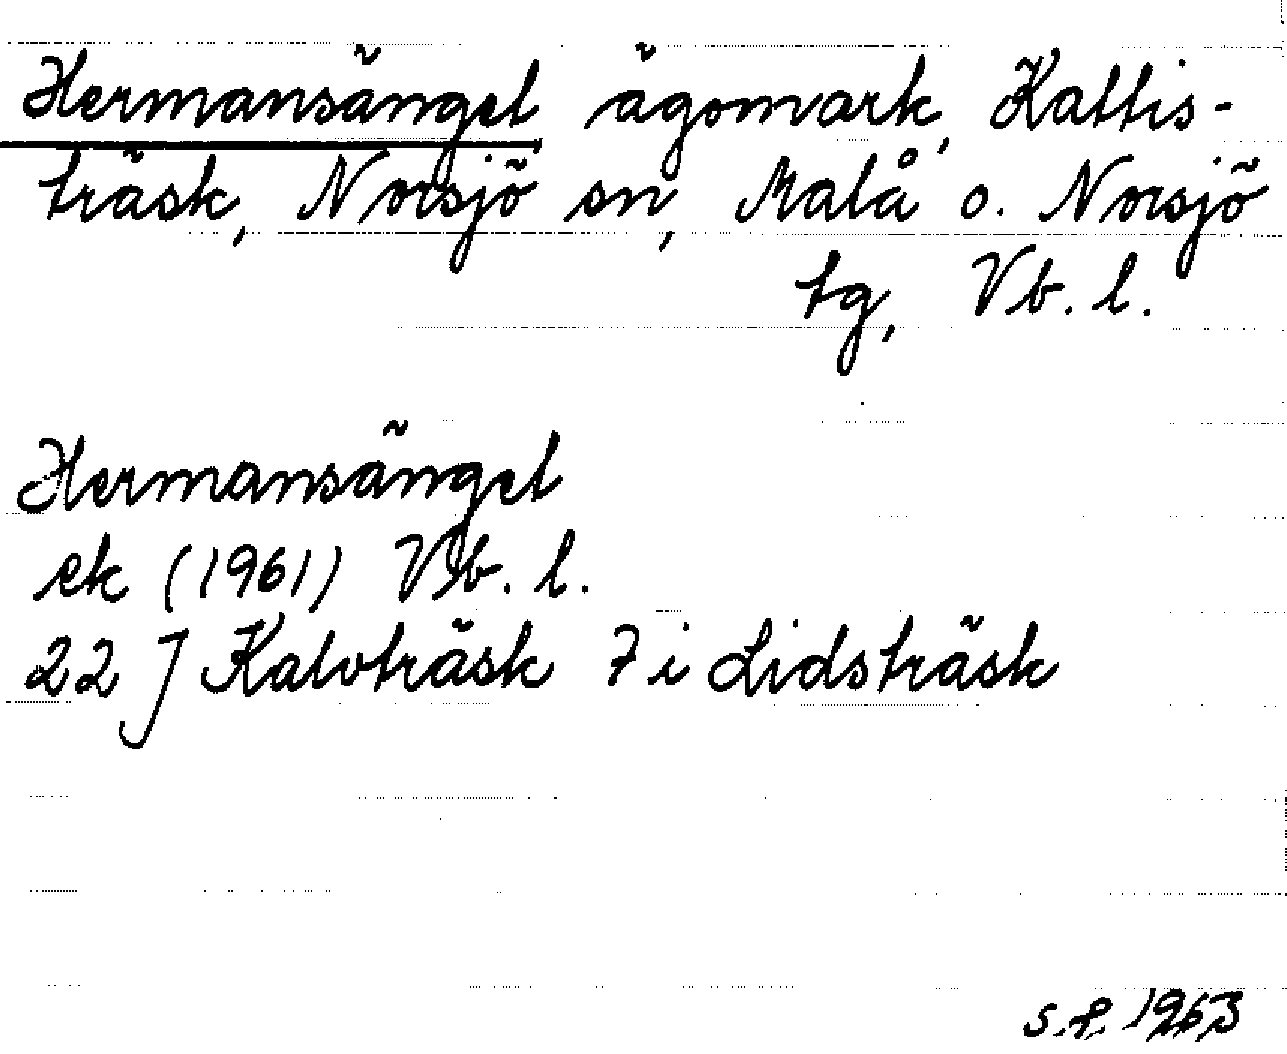 Hermansänget ägomark, Kattis-
träsk, Norsjö sn, Malå o. Norsjö
tg, Vb. l.
Hermansänget
ek (1961) Vb. l.
22 J Kalvträsk 7 i Lidsträsk
1963